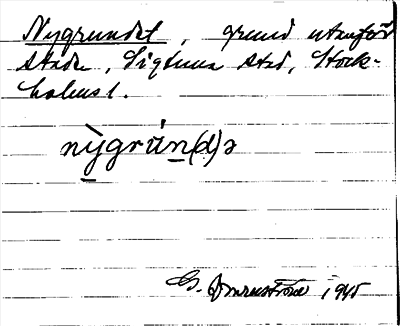 Nygrundet, grund utanför
stade, Sigtuna stad, Stock-
holms l.
nỳgrún(d)ə
G. 1945